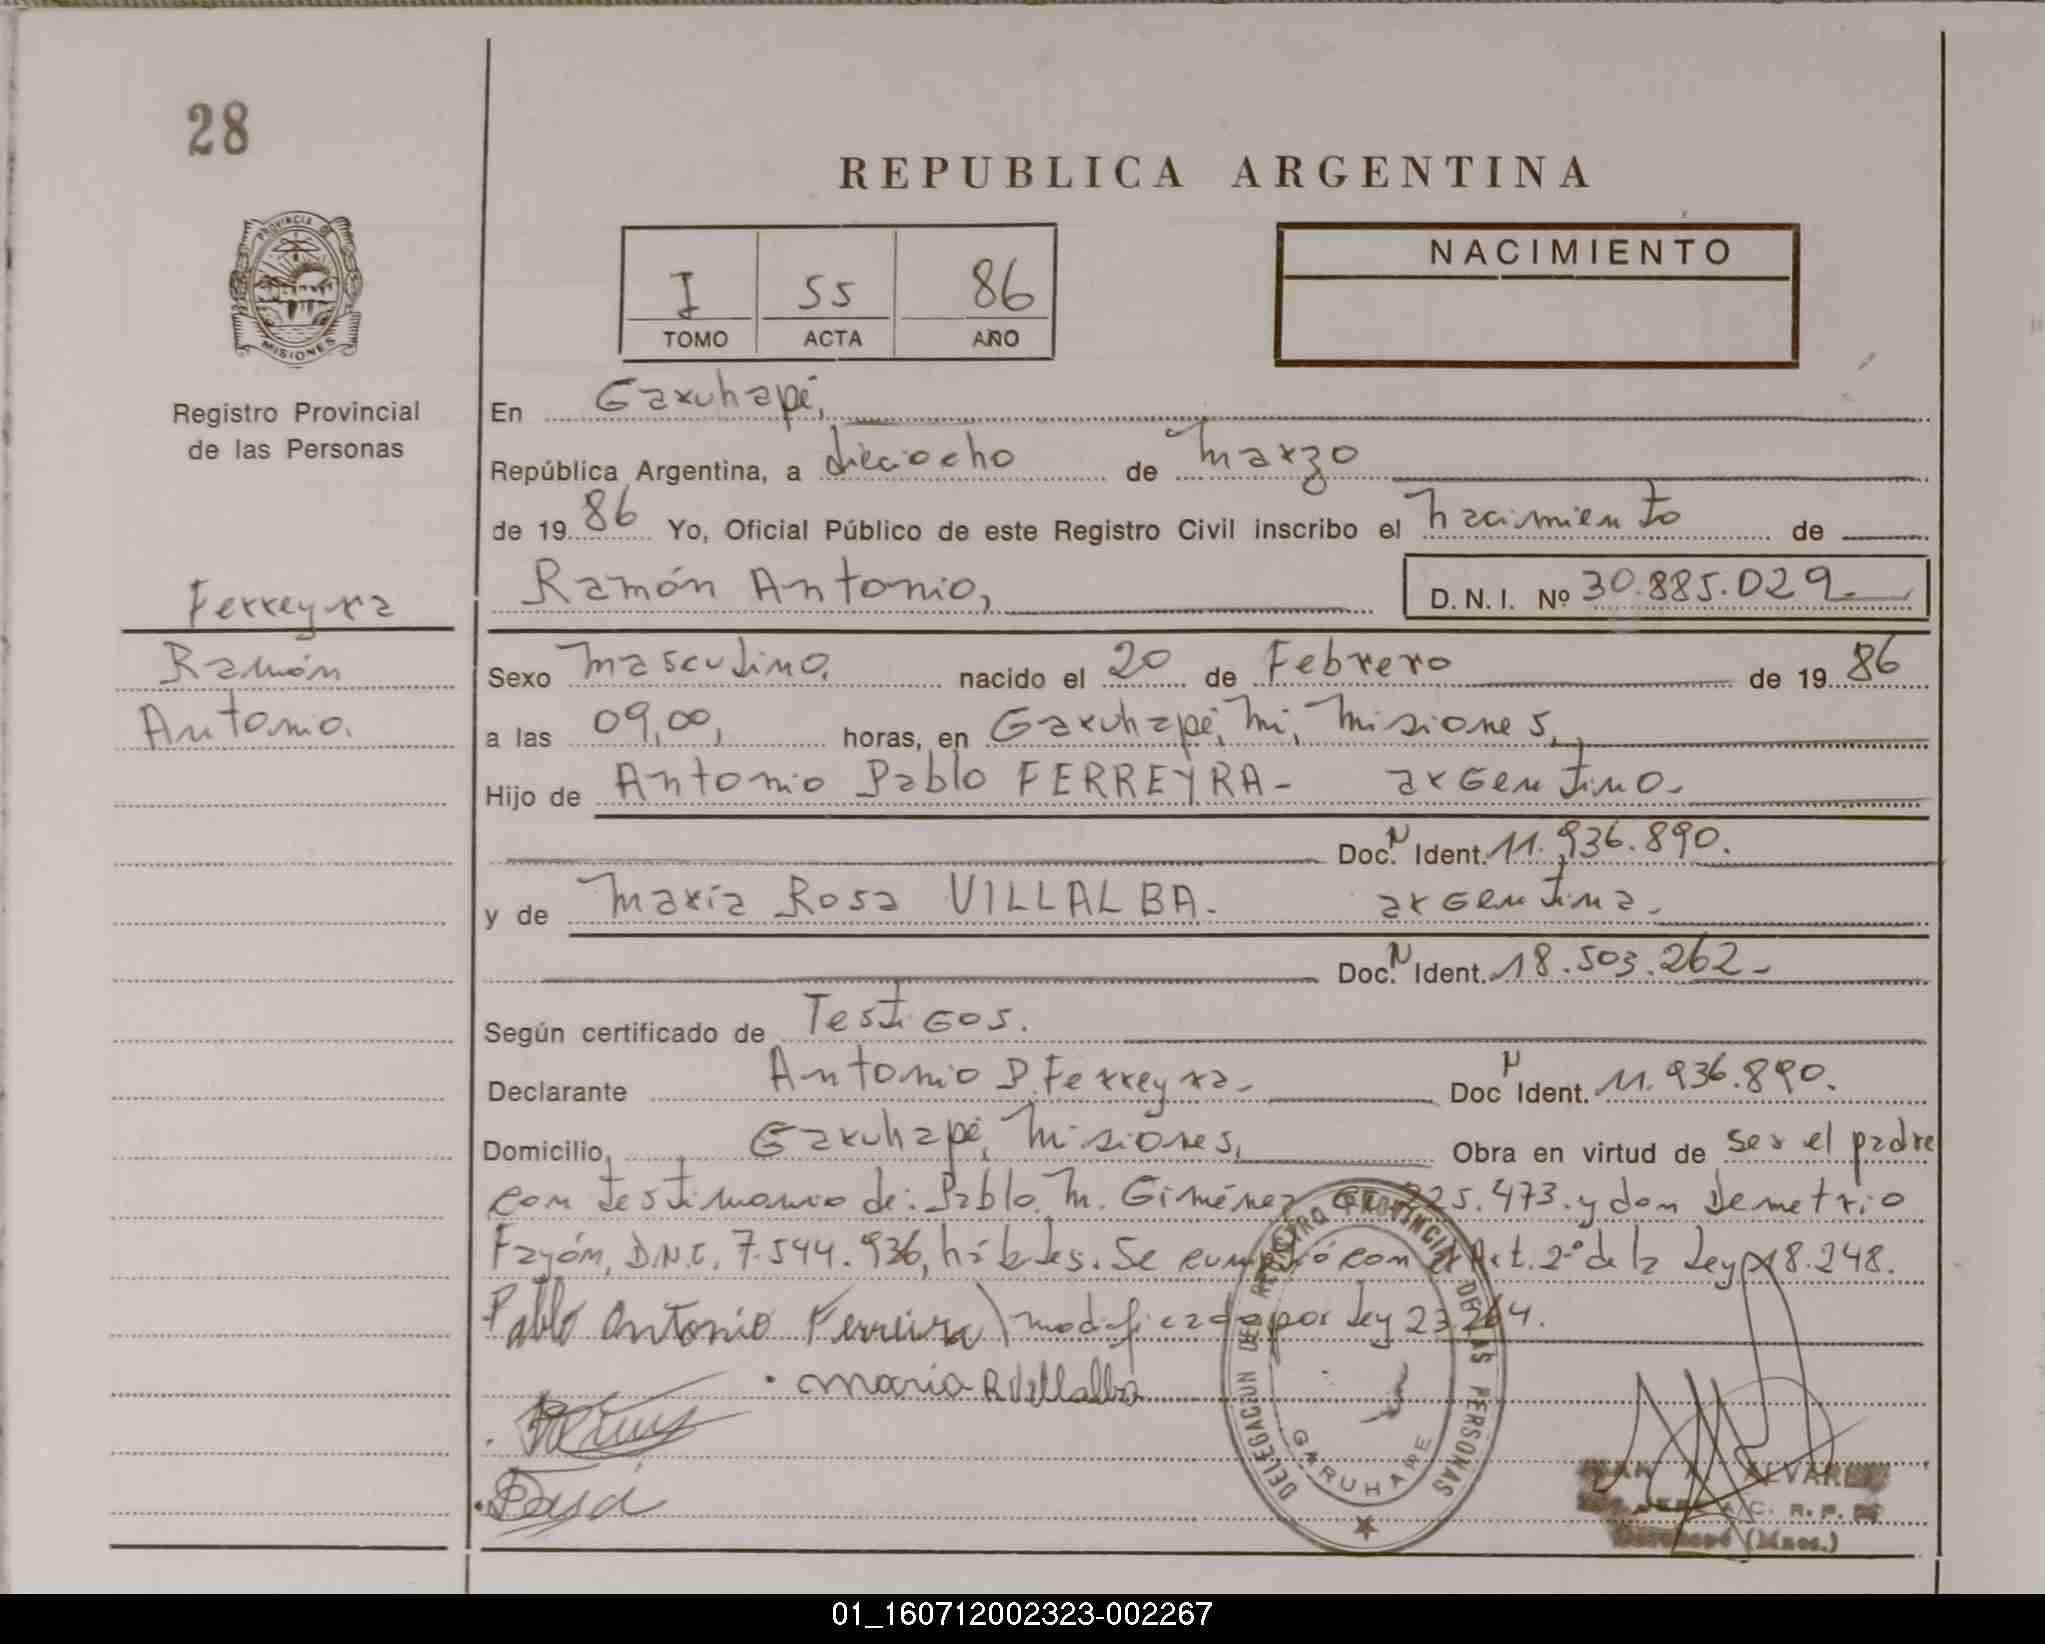 28
REPUBLICA ARGENTINA
PROVINCIA DE
MISIONES
Registro Provincial
de las Personas
NACIMIENTO
I 55 86
TOMO ACTA AÑO
En Garuhapé,
República Argentina, a dieciocho de marzo
de 1986 Yo, Oficial Público de este Registro Civil inscribo el nacimiento de
Ramón Antonio, D.N.I. Nº 30.885.029.
Ferreyra
Ramón
Antonio.
Sexo masculino. nacido el 20 de Febrero de 1986
a las 09,00, horas, en Garuhapé, Mi, Misiones,
Hijo de Antonio Pablo FERREYRA- argentino.
Doc. N Ident. 11.936.890.
y de María Rosa VILLALBA. argentina.
Doc. N Ident. 18.503.262-
Según certificado de Testigos.
Declarante Antonio P. Ferreyra- Doc N Ident. 11.936.890.
Domicilio, Garuhapé, Misiones, Obra en virtud de ser el padre
con testimonio de: Pablo M. Giménez 225.473. y don Demetrio
Fayón, D.N.I. 7.544.936, hábiles. Se cumplió con el Art. 2º de la Ley 18.248.
Pablo Antonio Ferreira) modificada por Ley 23.264.
maria R Villalba
DELEGACION DEL REGISTRO PROVINCIAL DE LAS PERSONAS
GARUHAPE
ALVAREZ
R. P.
Garuhapé (Mnes.)
01_160712002323-002267